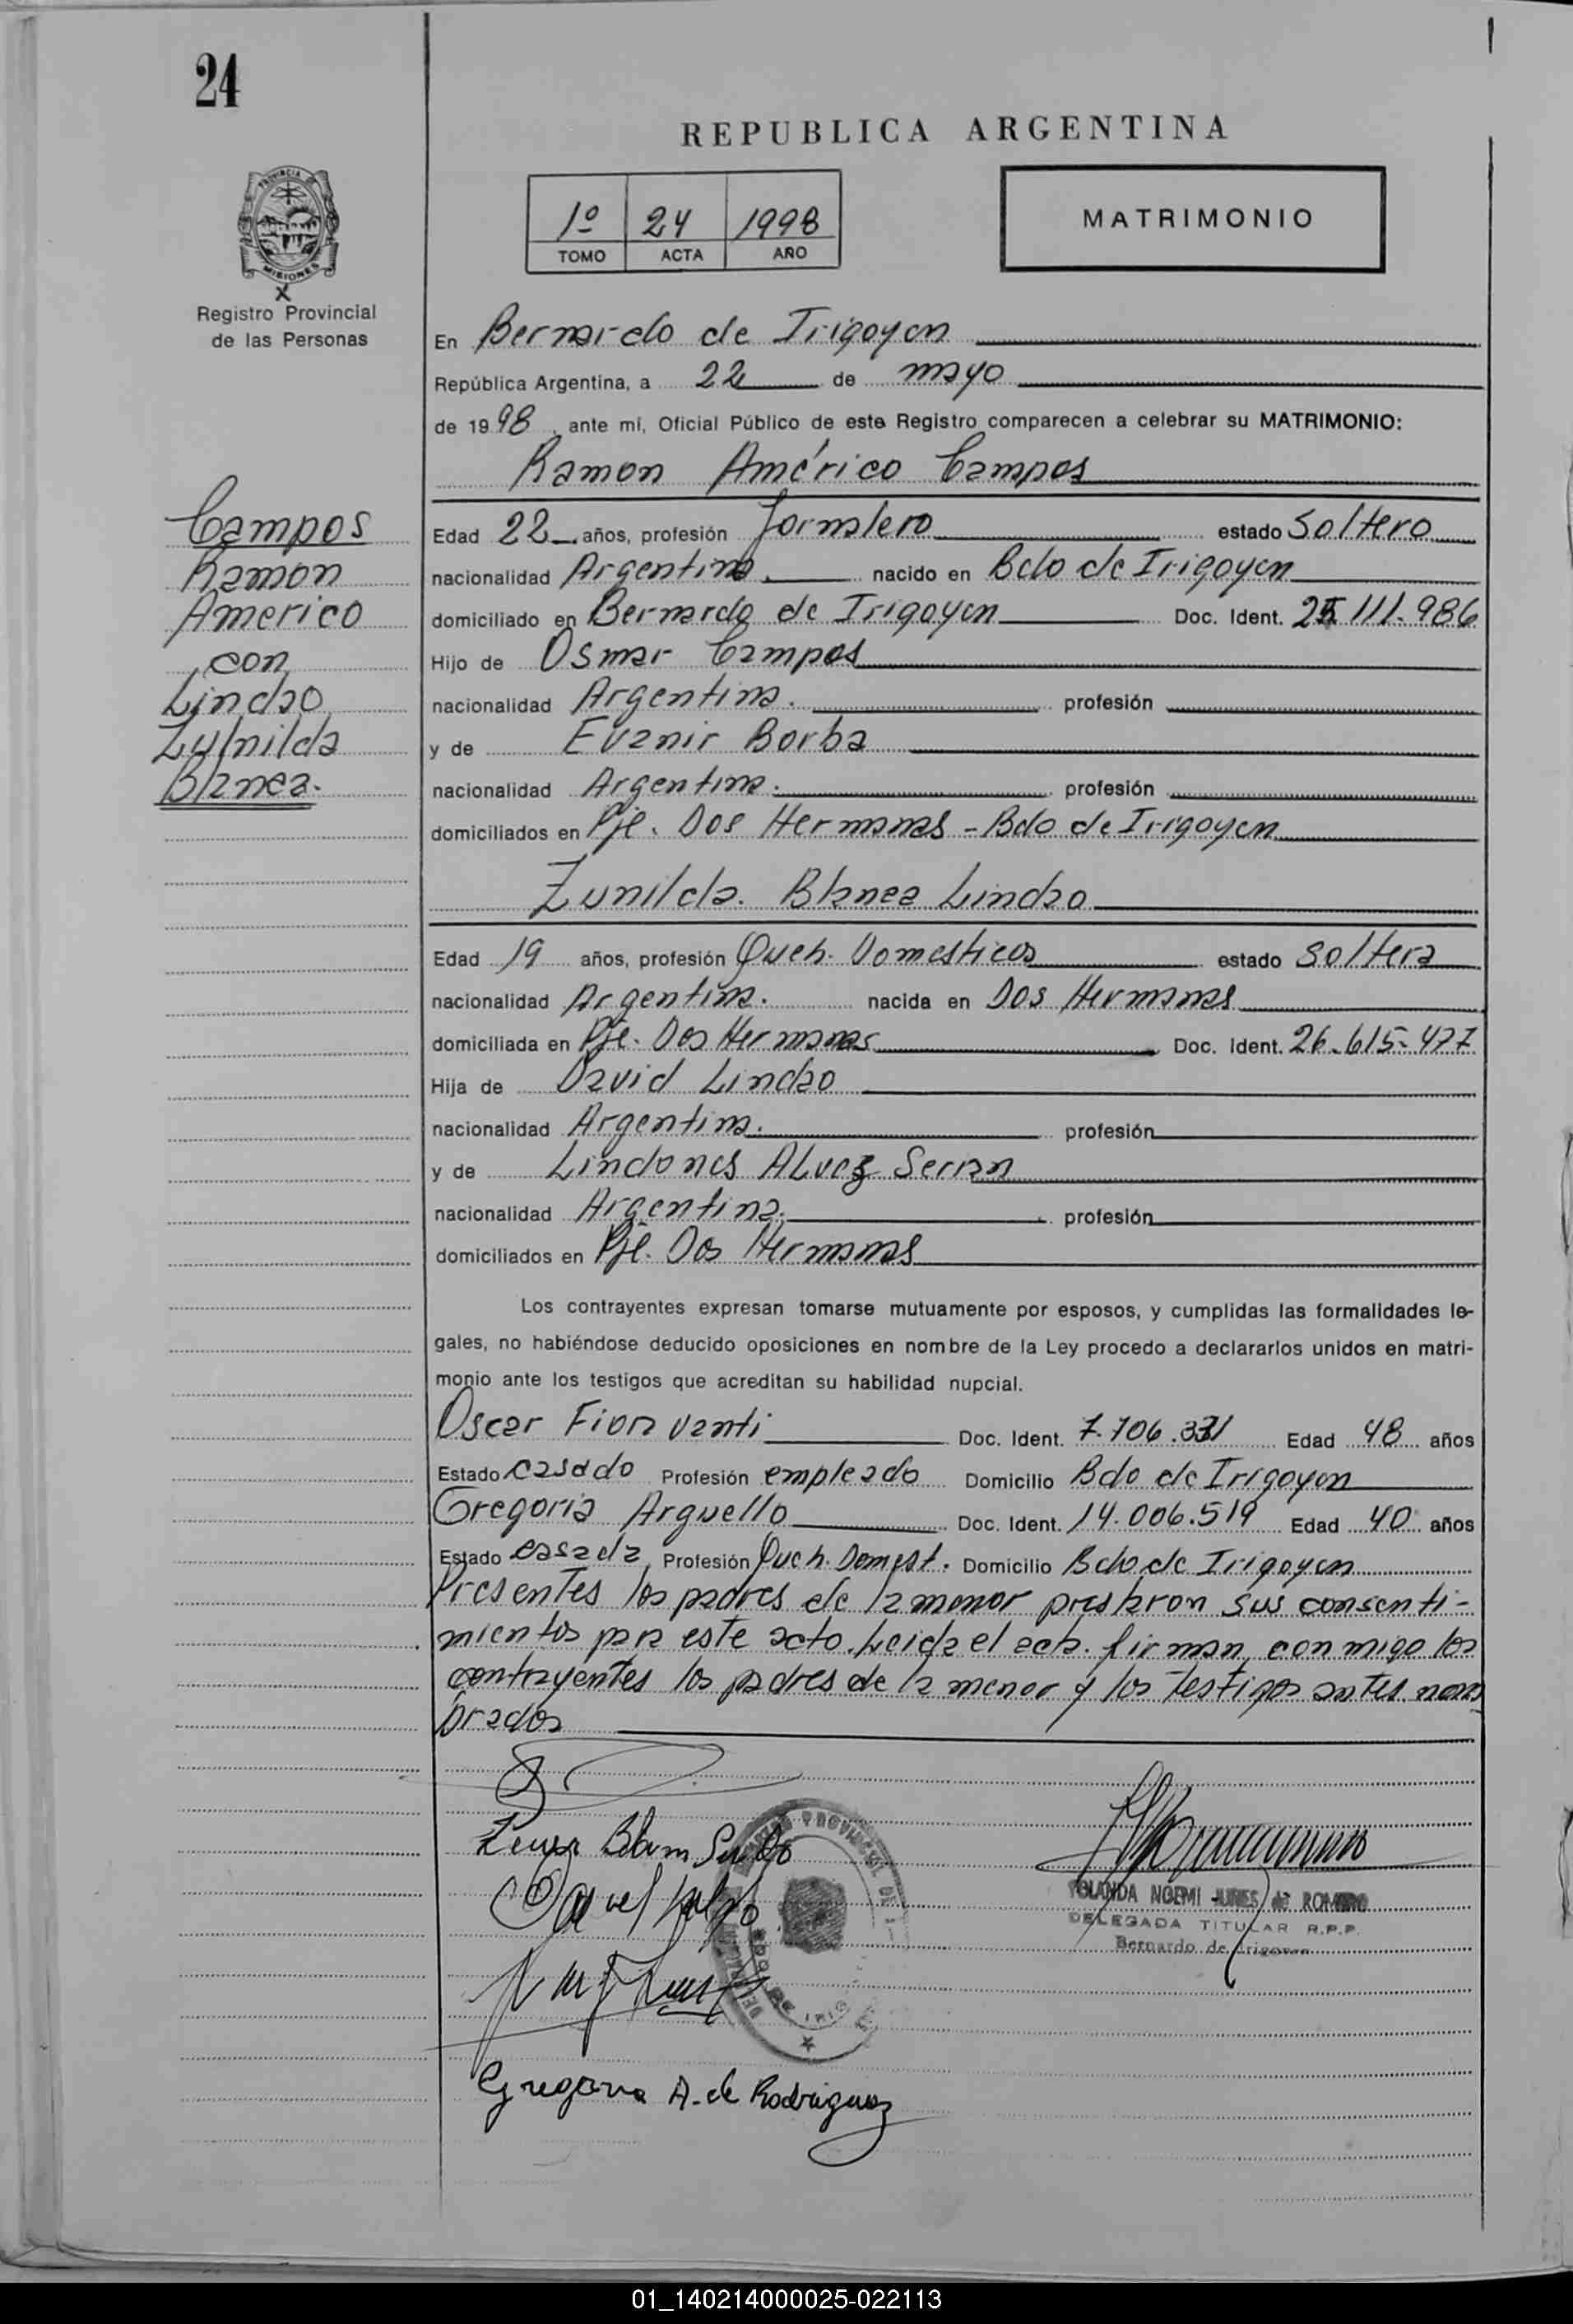 24
REPUBLICA ARGENTINA
1º 24 1998
TOMO ACTA AÑO
MATRIMONIO
PROVINCIA DE
MISIONES
X
Registro Provincial
de las Personas
En Bernardo de Irigoyen
República Argentina, a 22 de mayo
de 1998, ante mí, Oficial Público de este Registro comparecen a celebrar su MATRIMONIO:
Ramon Américo Campos
Campos
Ramon
Americo
con
Lindao
Zulnilda
Blanca.
Edad 22 años, profesión Jornalero estado Soltero
nacionalidad Argentina. nacido en Bdo de Irigoyen
domiciliado en Bernardo de Irigoyen Doc. Ident. 25.111.986
Hijo de Osmar Campos
nacionalidad Argentina. profesión
y de Evanir Borba
nacionalidad Argentina. profesión
domiciliados en Pje. Dos Hermanas - Bdo de Irigoyen
Zunilda Blanca Lindao
Edad 19 años, profesión Queh. Domesticos estado Soltera
nacionalidad Argentina. nacida en Dos Hermanas
domiciliada en Pje. Dos Hermanas Doc. Ident. 26.615.477
Hija de David Lindao
nacionalidad Argentina. profesión
y de Lindones ALvez Serran
nacionalidad Argentina. profesión
domiciliados en Pje. Dos Hermanas
Los contrayentes expresan tomarse mutuamente por esposos, y cumplidas las formalidades le-
gales, no habiéndose deducido oposiciones en nombre de la Ley procedo a declararlos unidos en matri-
monio ante los testigos que acreditan su habilidad nupcial.
Oscar Fioravanti Doc. Ident. 7.706.331 Edad 48 años
Estado casado Profesión empleado Domicilio Bdo de Irigoyen
Gregoria Arguello Doc. Ident. 14.006.519 Edad 40 años
Estado casada Profesión Queh. Domest. Domicilio Bdo. de Irigoyen
Presentes los padres de la menor prestaron sus consenti-
mientos para este acto. Leida el acta. firman, conmigo los
contrayentes los padres de la menor y los testigos antes nom
brados
Gregoria A. de Rodriguez
YOLANDA NOEMI JUNES de ROMERO
DELEGADA TITULAR R.P.P.
Bernardo de Irigoyen
01_140214000025-022113